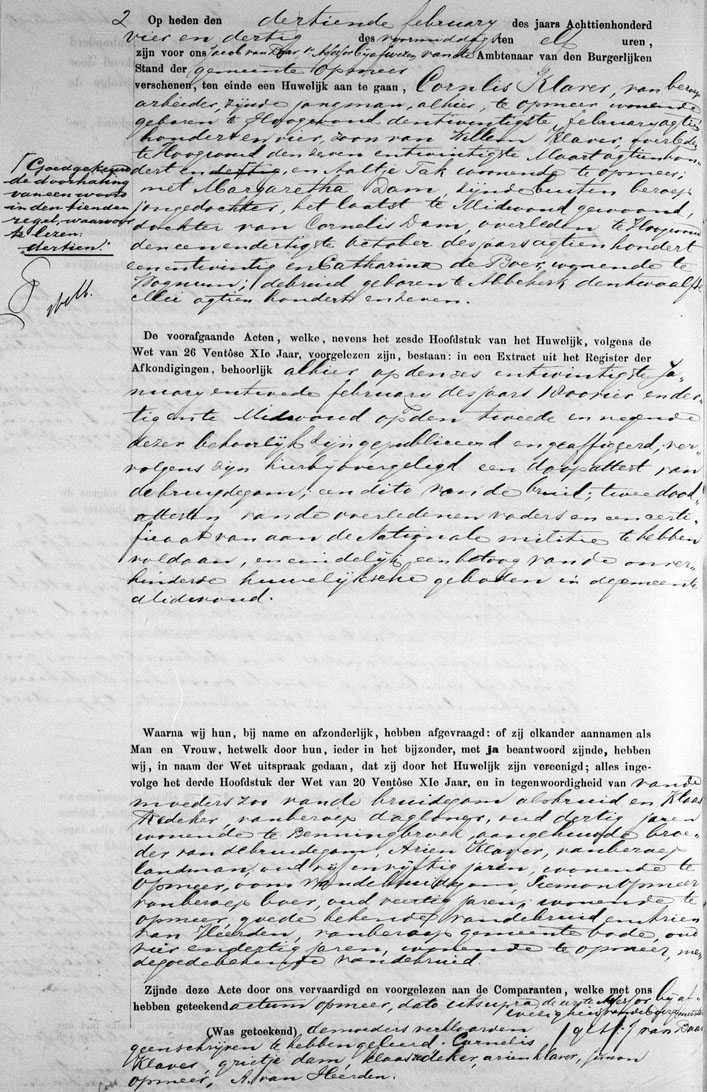 2 Op heden den dertiende february des jaars Achttienhonderd
vier en dertig des voormiddags ten elf uren,
zijn voor ons Jacob van bij afwezen van de Ambtenaar van den Burgerlijken
Stand der gemeente Opmeer
verschenen, ten einde een Huwelijk aan te gaan, Cornelis Klaver, van beroep
arbeider, zijnde jongman, alhier, te opmeer wonende
geboren te Hoogwoud den twintigste february agtien
honderd en vier, zoon van Willem Klaver, overleden
te Hoogwoud den zeven entwintigste Maart agtienhon-
dert en deftig, en Aaltje Tak wonende te opmeer;
met Margaretha Dam, zijnde buiten beroep
jongedochter, het laatst te Midwoud gewoond,
dochter van Cornelis Dam, overleden te Hoogwoud
den eenendertigste october des jaars agtienhondert
eenentwintig en Catharina de Boer, wonende te
Wognum; de bruid geboren te Abbekerk den twaalfde
Mei agtien honderd en zeven.
Goedgekeurd
de doorhaling
van een woord
in den tienden
regel, waarvoor
te lezen:
dertien.
De voorafgaande Acten, welke, nevens het zesde Hoofdstuk van het Huwelijk, volgens de
Wet van 26 Ventôse XIe Jaar, voorgelezen zijn, bestaan: in een Extract uit het Register der
Afkondigingen, behoorlijk alhier op den zes entwintigste Ja-
nuary en twede february des jaars 1800 vier en der-
tig en te Midwoud op den tweede en negende
dezer behoorlijk zijn gepubliceerd en geaffigeerd; ver-
volgens zijn hierbij overgelegd een doopattest van
de bruidegom; een dito van de bruid; twee dood
attesten van de overledenen vaders en een certi-
ficaat van aan de Nationale militie te hebben
voldaan, en eindelijk een betoog van de onver-
hinderde huwelijksche geboden in de gemeente
Midwoud.
Waarna wij hun, bij name en afzonderlijk, hebben afgevraagd: of zij elkander aannamen als
Man en Vrouw, hetwelk door hun, ieder in het bijzonder, met ja beantwoord zijnde, hebben
wij, in naam der Wet uitspraak gedaan, dat zij door het Huwelijk zijn vereenigd; alles inge-
volge het derde Hoofdstuk der Wet van 20 Ventôse XIe Jaar, en in tegenwoordigheid van van de
moeders zoo van de bruidegom als bruid en Klaas
Redeker van beroep dagloner, oud dertig jaren
wonende te Benningbroek, aangehuwde broe-
der van de bruidegom, Arien Klaver, van beroep
landman, oud vijf en vijftig jaren, wonende te
Opmeer, oom van de bruidegom, Siemon Opmeer
van beroep boer, oud veertig jaren, wonende te
opmeer, goede bekende van de bruid en Arien
van Heerden, van beroep gemeente bode, oud
vier en dertig jaren, wonende te opmeer, me-
de goede bekende van de bruid
Zijnde deze Acte door ons vervaardigd en voorgelezen aan de Comparanten, welke met ons
hebben geteekend actum opmeer, dato utsupra
(Was geteekend) de moeders verklaarden
geen schrijven te hebben geleerd. Cornelis
Klaver, grietje dam, klaas redeker, arien klaver, simon
opmeer, A. van Heerden.